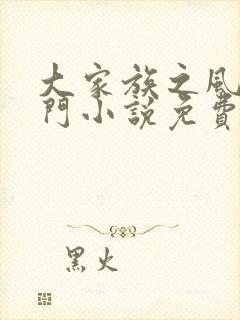 大家族之風
門小說免費
黑火